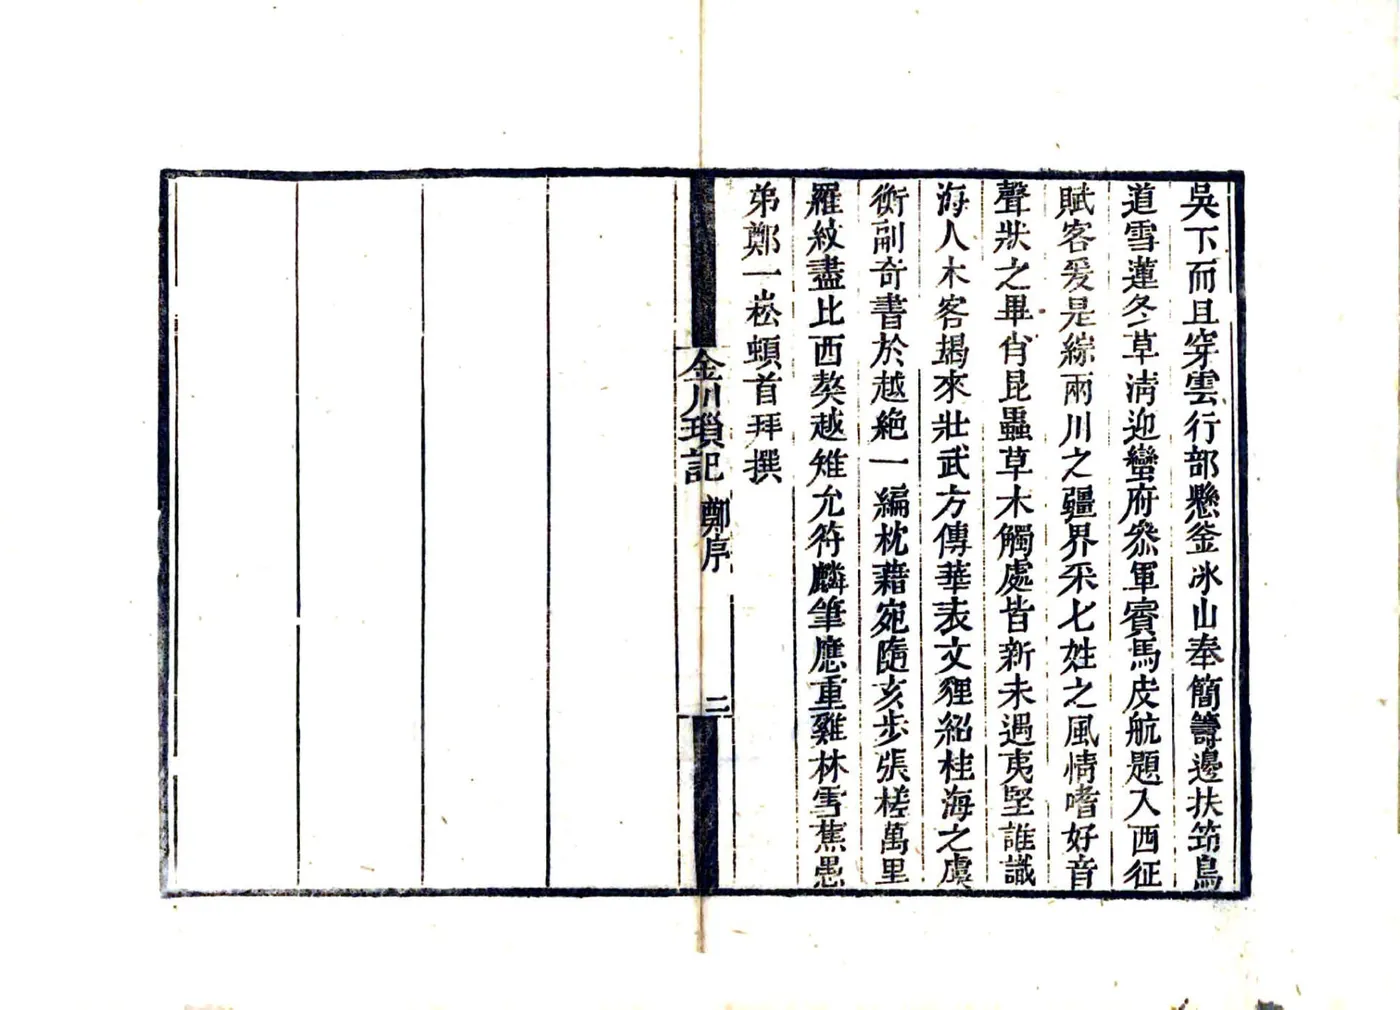 吳下而且穿雲行部懸釜冰山奉簡籌邊扶筇鳥
道雪蓮冬草淸迎蠻府叅軍賓馬皮航題入西征
賦客爰是綜兩川之疆界采七姓之風情嗜好音
聲狀之畢肖昆蟲草木觸處皆新未遇夷堅誰識
海人木客朅來壯武方傳華表文貍紹桂海之虞
衡副奇書於越絶一編枕藉宛隨亥步張槎萬里
羅紋盡比西獒越雉允符麟筆應重雞林雪蕉愚
弟鄭一崧頓首拜撰
金川瑣記
鄭序
二